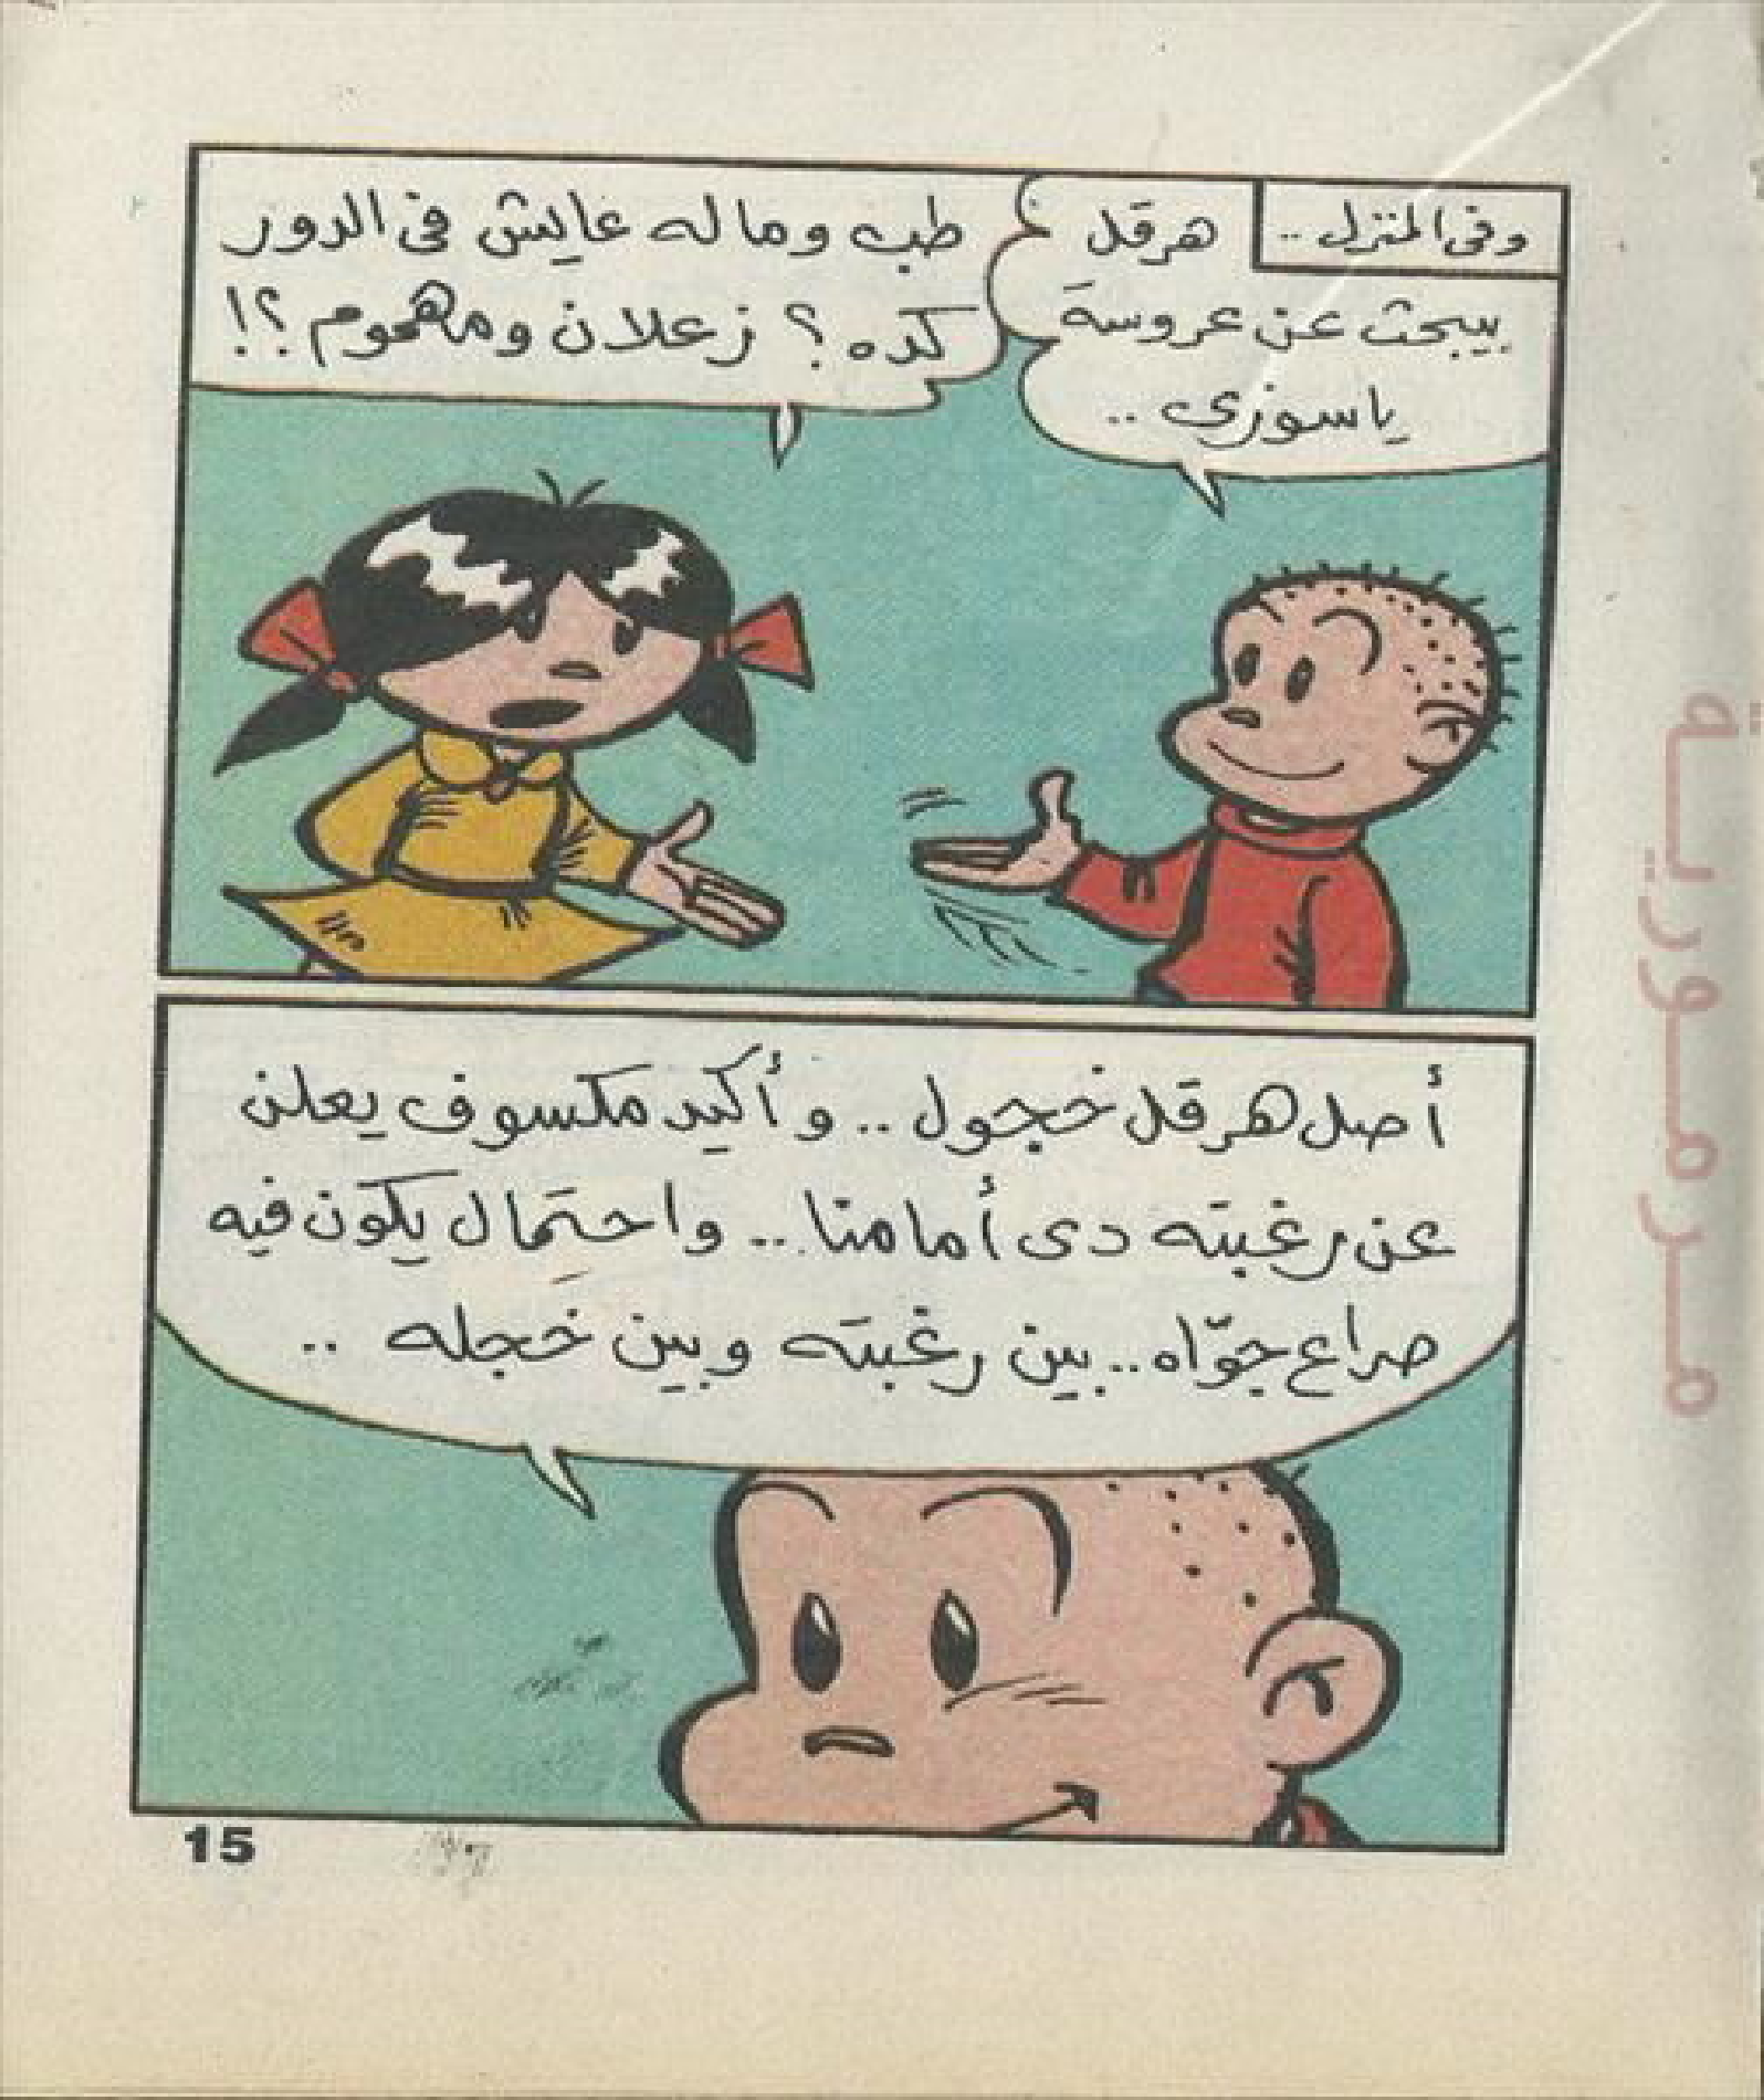 وفى المنزل ..
هرقل
بيبحث عن عروسة
ياسوزى ..
طب وماله عايش فى الدور
كده؟ زعلان ومهموم؟!
أصل هرقل خجول .. وأكيد مكسوف يعلن
عن رغبته دى أمامنا .. واحتمال يكون فيه
صراع جوّاه .. بين رغبته وبين خجله ..
15